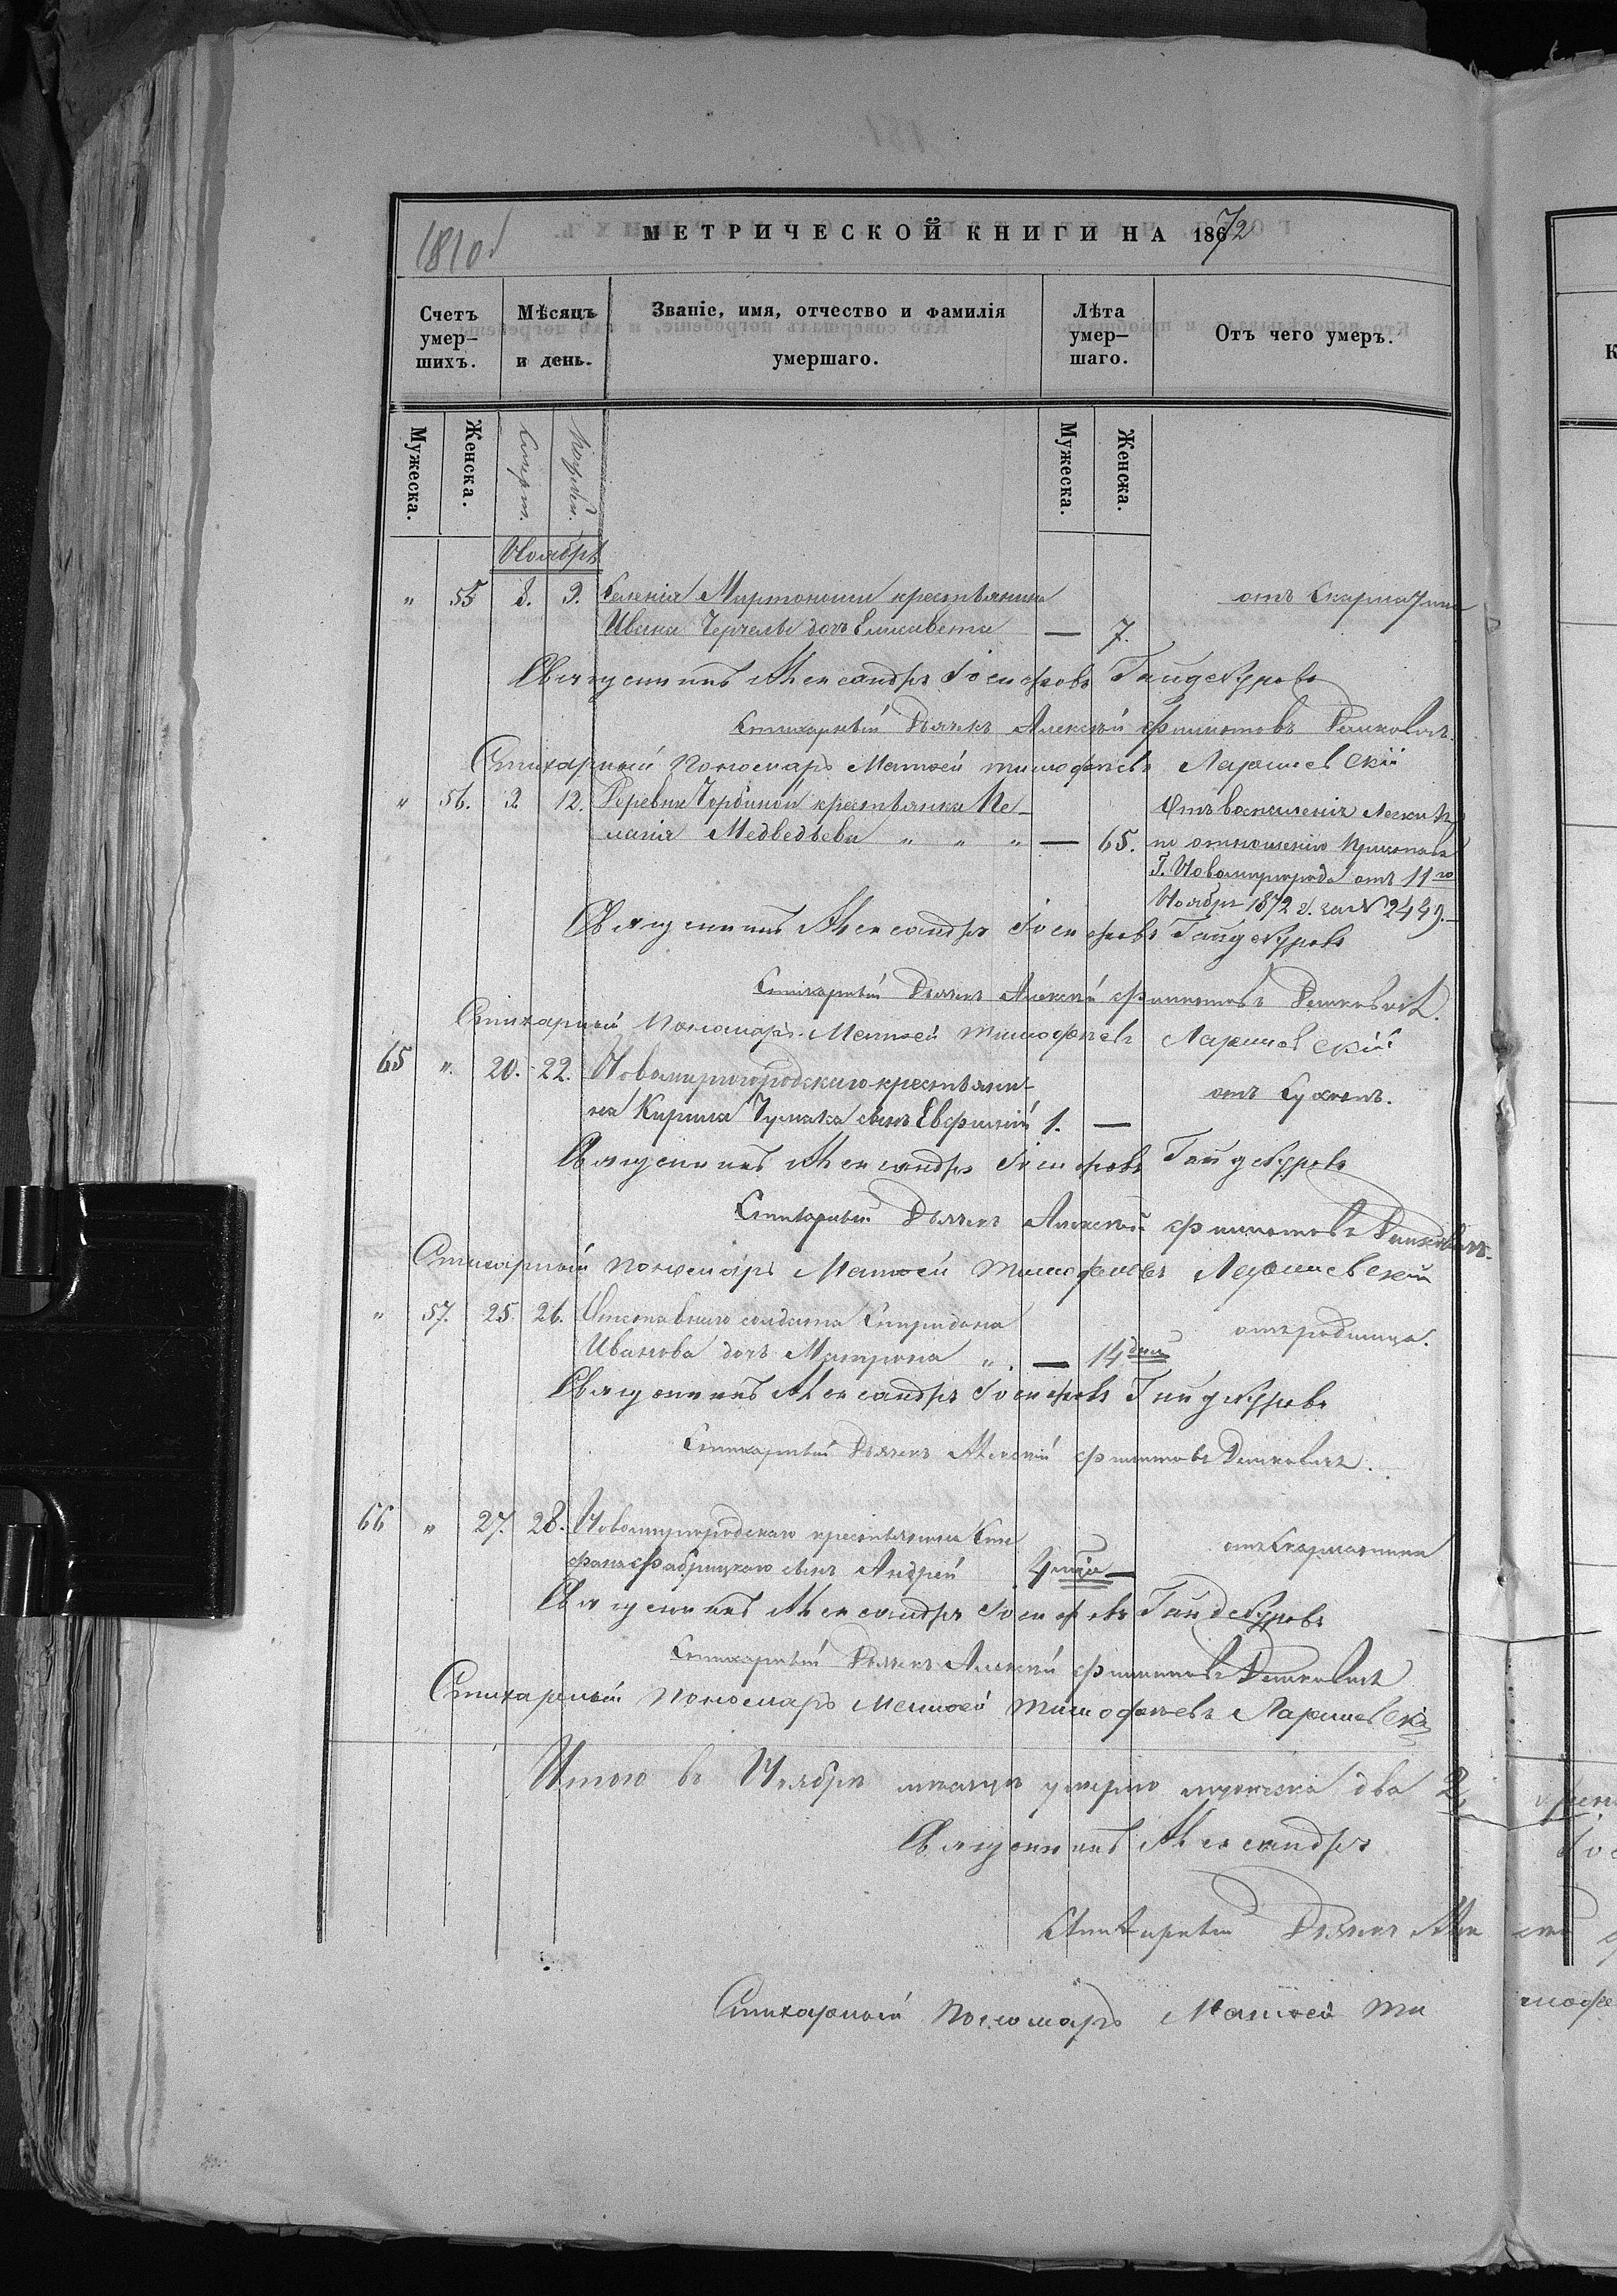 МЕТРИЧЕСКОЙ КНИГИ НА 1872
Счетъ умер-шихъ.
Мѣсяцъ и день.
Званіе, имя, отчество и фамилія умершаго.
Лѣта умер-шаго.
Отъ чего умеръ.
Мужеска.
Женска.
Смерт.
Погреб.
Мужеска.
Женска.
Ноябрь
" 55 8. 9. Селенія Мартоноши крестьянина отъ Скарлатины
Ивана дочь Елисавета — 7.
Священникъ Александръ Іосифовъ Гайдебуровъ
Стихарный Дьячекъ Алексѣй Филиповъ
Стихарный Пономарь Матѳей Тимофеевъ Ляришевскій
" 56. 9. 12. Деревни крестьянка Пе-
лагія Медведѣева " " " — 65.
Отъ воспаленія Легкихъ
по отношенію
Г. Новомиргорода отъ 11го
Ноября 1872 г. за № 2449.
Священникъ Александръ Іосифовъ Гайдебуровъ
Стихарный Дьячекъ Алексѣй Филиповъ
Стихарный Пономарь Матѳей Тимофеевъ Ляришевскій
65 " 20. 22. Новомиргородскаго крестьяни-
на Кирила Чумака сынъ Евфимій 1. —
отъ Сухотъ.
Священникъ Александръ Іосифовъ Гайдебуровъ
Стихарный Дьячекъ Алексѣй Филиповъ
Стихарный Пономарь Матѳей Тимофеевъ Ляришевскій
" 57. 25. 26. Отставнаго солдата Спиридона
Иванова дочь Матрона " — 14 дней
отъ родимца.
Священникъ Александръ Іосифовъ Гайдебуровъ
Стихарный Дьячекъ Алексѣй Филиповъ
66 " 27. 28. Новомиргородскаго крестьянина
сынъ Андрей 4 мѣся —
отъ Скарлатины
Священникъ Александръ Іосифовъ Гайдебуровъ
Стихарный Дьячекъ Алексѣй Филиповъ
Стихарный Пономарь Матѳей Тимофеевъ Ляришевскій
Итого въ Ноябрѣ мѣсяцѣ умерло мужеска два 2,
Священникъ Александръ
Стихарный Дьячекъ Але
Стихарный Пономарь Матѳей Ти